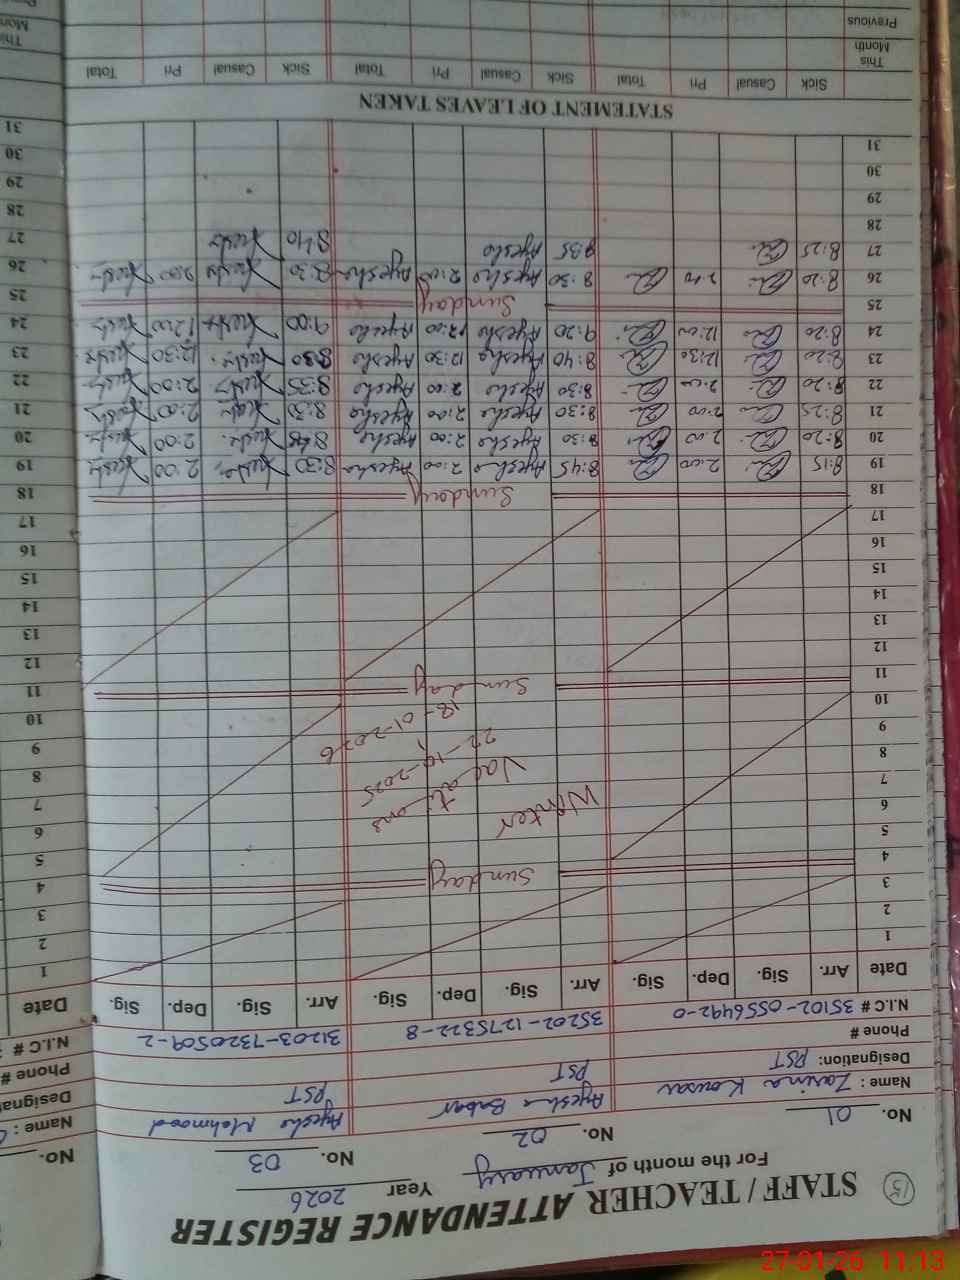 15
STAFF / TEACHER ATTENDANCE REGISTER
For the month of January Year 2026
No. 01 No. 02 No. 03 No.
Name : Zarina Kousar Ayesha Babar Ayesha Mehmood Name :
Designation: PST PST PST
Phone # Phone #
N.I.C # 35102-0556492-0 35202-1275322-8 31203-7320509-2 N.I.C #
Date Arr. Sig. Dep. Sig. Arr. Sig. Dep. Sig. Arr. Sig. Dep. Sig. Date
1 1
2 2
3 3
4 Sunday 4
5 5
6 Winter 6
7 Vacations 7
8 22-10-2025 8
9 18-01-2026 9
10 10
11 Sunday 11
12 12
13 13
14 14
15 15
16 16
17 17
18 Sunday 18
19 8:15 2:00 8:45 Ayesha 2:00 Ayesha 8:30 2:00 19
20 8:20 2:00 8:30 Ayesha 2:00 Ayesha 8:45 2:00 20
21 8:25 2:00 8:30 Ayesha 2:00 Ayesha 8:30 2:00 21
22 8:20 2:00 8:30 Ayesha 2:00 Ayesha 8:35 2:00 22
23 8:20 12:30 8:40 Ayesha 12:30 Ayesha 8:30 12:30 23
24 8:20 12:00 9:20 Ayesha 12:00 Ayesha 9:00 12:00 24
25 Sunday 25
26 8:20 2:40 8:30 Ayesha 2:00 Ayesha 8:30 2:00 26
27 8:25 9:35 Ayesha 8:40 27
28 28
29 29
30 30
31 31
STATEMENT OF LEAVES TAKEN
Sick Casual Pri Total Sick Casual Pri Total Sick Casual Pri Total
This Month
Previous
27-01-26 11:13